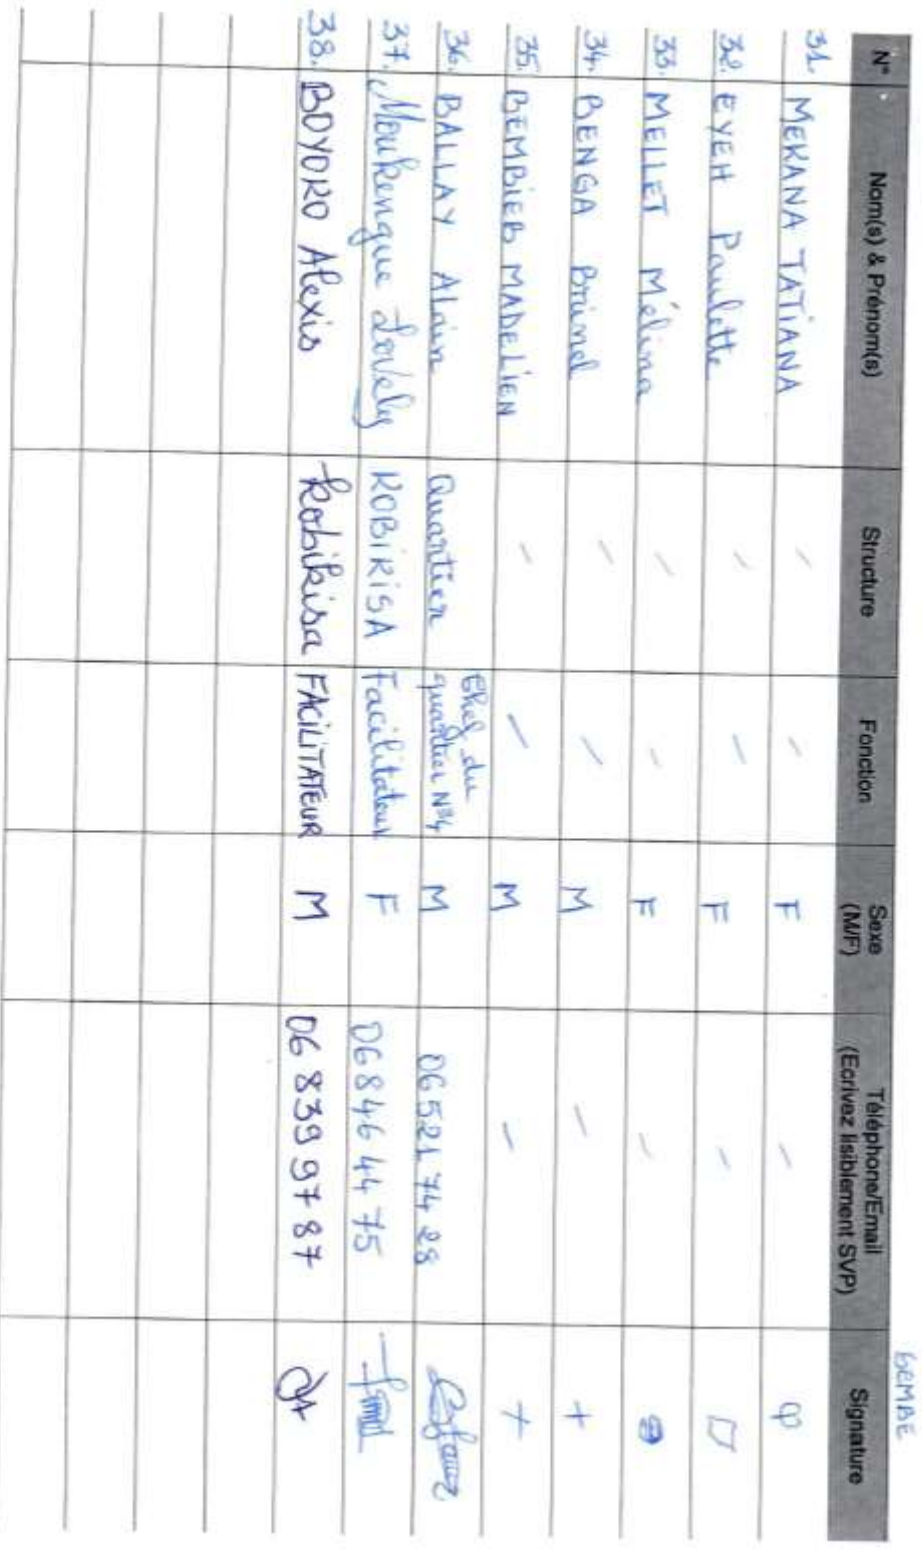 SEMBE
N° Nom(s) & Prénom(s) Structure Fonction Sexe (M/F) Téléphone/Email (Ecrivez lisiblement SVP) Signature
31. MEKANA TATIANA - - F -
32. EYEH Paulette - - F -
33. MELLET Mélina - - F -
34. BENGA Brinel - - M -
35. BEMBIEB MADELIEN - - M -
36. BALLAY Alain Quartier Chef du quartier N°4 M 06521 74 28
37. Moukengue Lovely KOBIKISA Facilitateur F 06846 44 75
38. BOYORO Alexis Kobikisa FACILITATEUR M 06 839 97 87